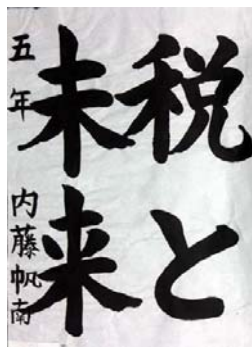 税と
未来
五年 内藤帆南